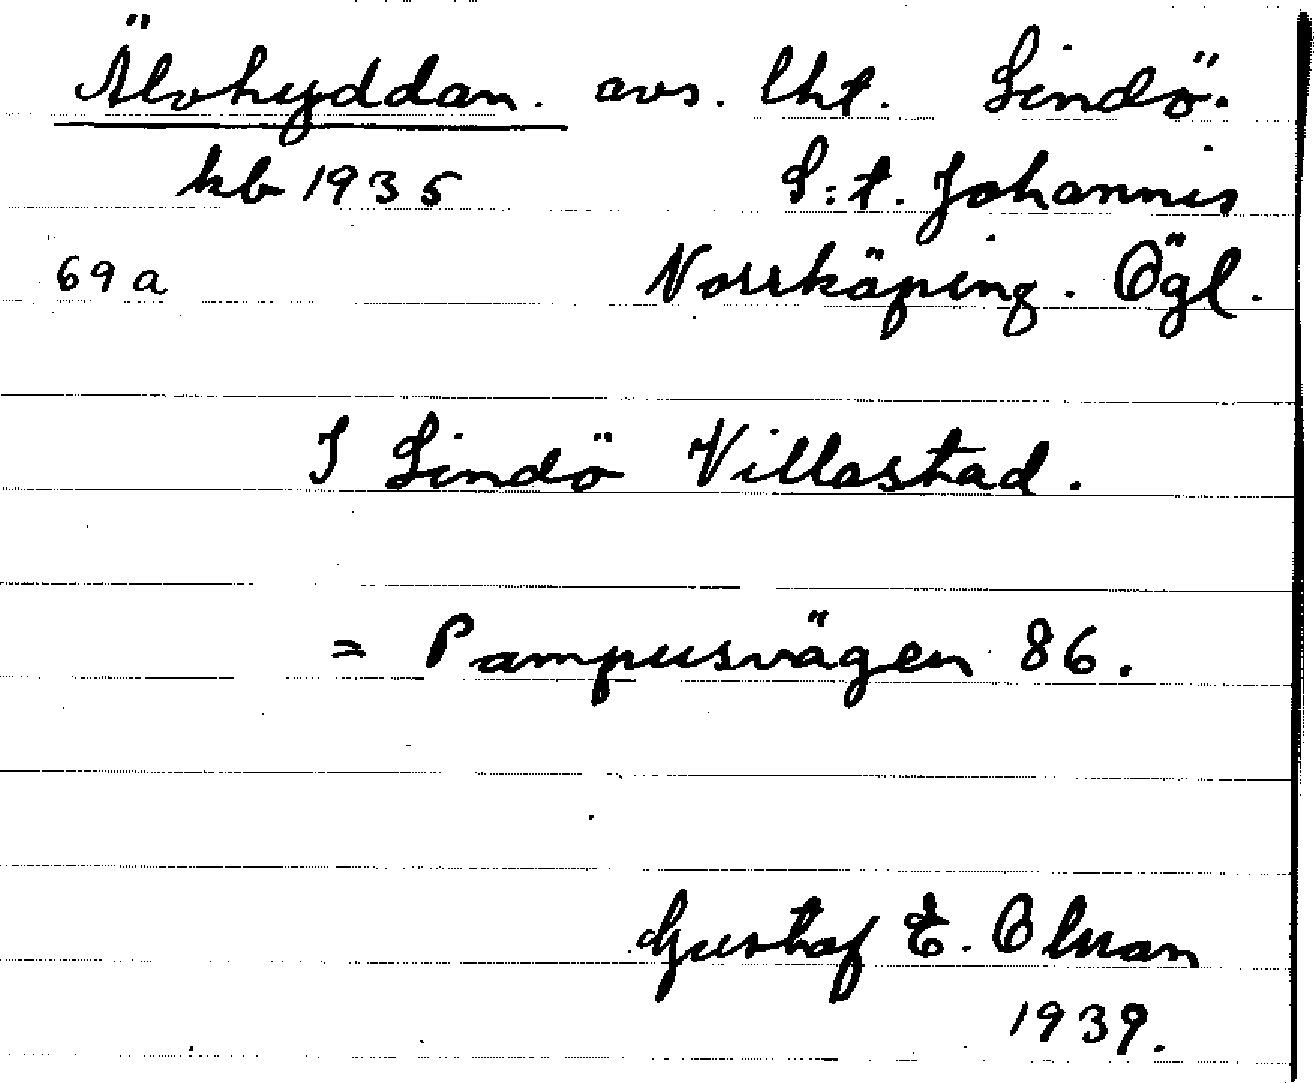 Älvhyddan. avs. lht. Lindö.
kb 1935 S:t. Johannis
69 a Norrköping. Ögl.
I Lindö Villastad.
= Pampusvägen 86.
Gustaf E. Olman
1939.